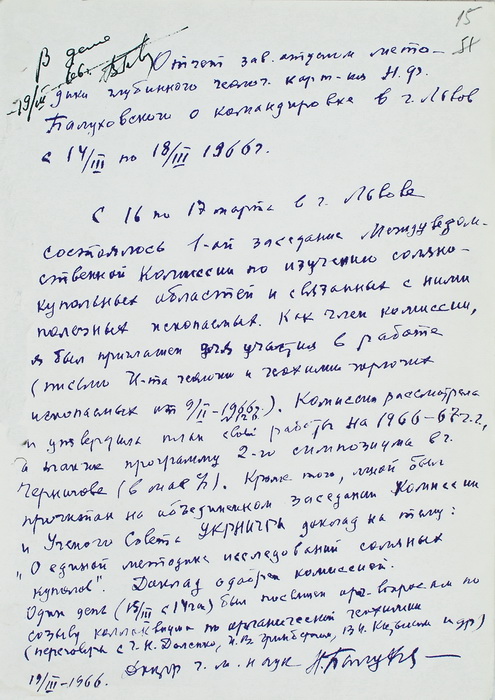 15
В дело
19/III 66г.
Отчет зав. отделом мето-
дики глубинного геолог. карт-ия Н.Ф.
Балуховского о командировке в г. Львов
с 14/III по 18/III 1966г.
С 16 по 17 марта в г. Львове
состоялось 1-ой заседание Междуведом-
ственной Комиссии по изучению соляно-
купольных областей и связанных с ними
полезных ископаемых. Как член комиссии,
я был приглашен для участия в работе
(письмо И-та геологии и геохимии горючих
ископаемых от 9/II-1966г.). Комиссия рассмотрела
и утвердила план своей работы на 1966-67г.г.,
а также программу 2-го симпозиума в г.
Чернигове (в мае). Кроме того, мной был
прочитан на объединенном заседании Комиссии
и Ученого Совета УКРНИГРИ доклад на тему:
"О единой методике исследований соляных
куполов". Доклад одобрен комиссией.
Один день (15/III) был посвящен вопросам по
созыву коллоквиума по органической геохимии
(переговоры с Г.Н. Доленко, и др)
19/III-1966. г.м. наук Н. Балух